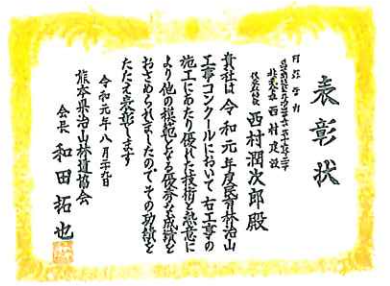 表彰状
西村建設
西村潤次郎殿
貴社は令和元年度民有林治山
工事コンクールにおいて右工事の
施工にあたり優れた技術と熱意に
より他の模範となる優秀な成績を
おさめられましたのでその功績を
たたえ表彰します
令和元年八月二十九日
熊本県治山林道協会
会長 和田拓也